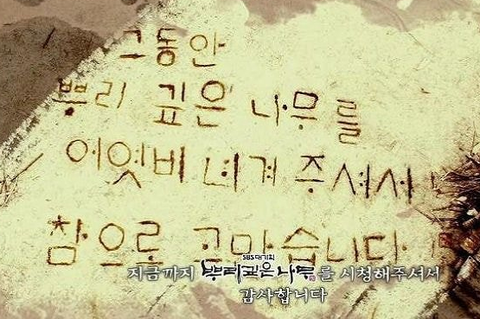 그동안
뿌리 깊은 나무를
어엿비 너겨 주셔서
참으로 고맙습니다
SBS대기획
지금까지 뿌리깊은나무를 시청해주셔서
감사합니다